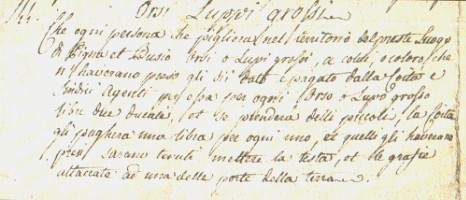 Orsi Luppi grossi
Che ogni persona che pigliera nel territorio del preste Luogo
di Pigna et Busio Orsi o Lupi grossi, a colui, o coloro che
n haverano preso gli sii dato e pagato dalla sorta e
Sindici Agenti per essa per ogni Orso o Lupo grosso
libre due ducale, et se prendera delli piccoli, la
gli paghera una libra per ogni uno, et quelli gli haverano
presi, sarano tenuti mettere la testa, et le grafie
attaccate ad una delle porte della terra